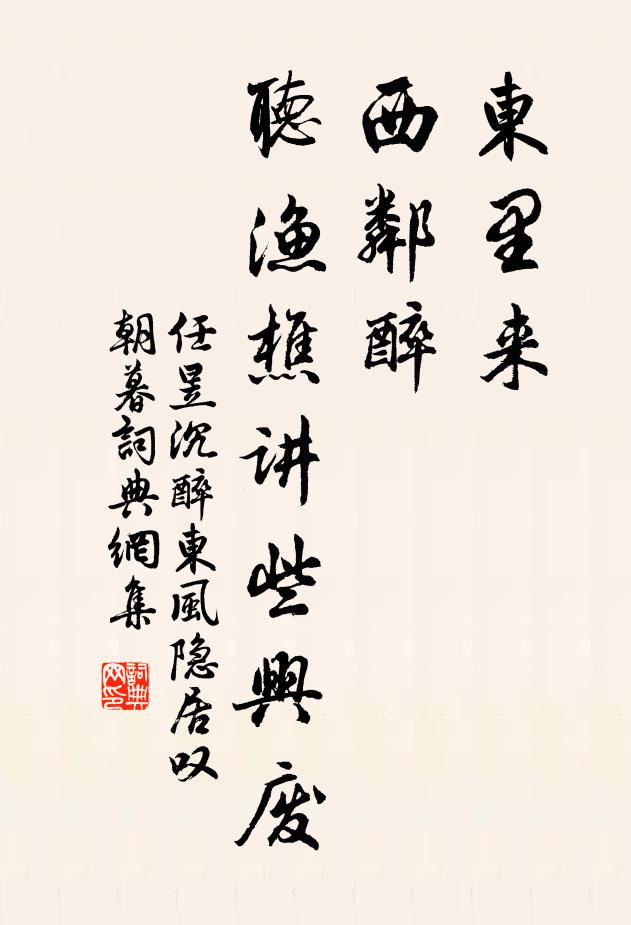 東里来
西鄰醉
聽漁樵讲些興廢
任昱沉醉東風隐居叹
朝暮詞典網集
詞典
网印